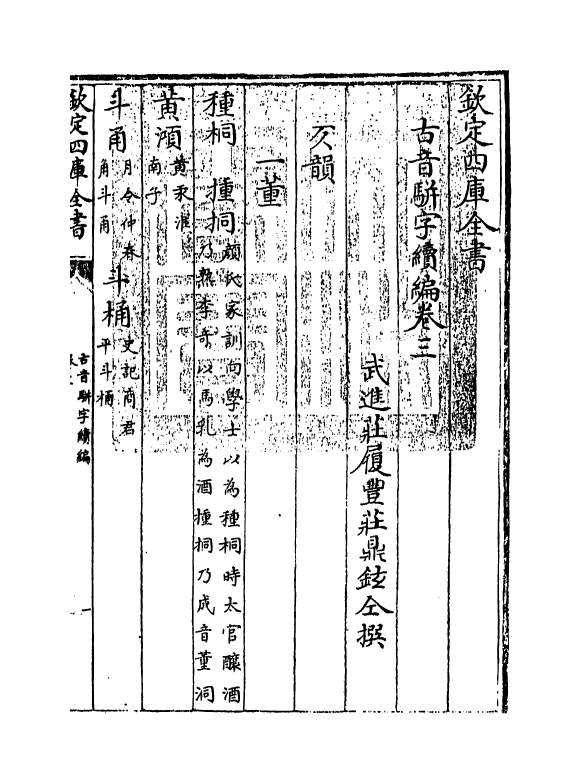 欽定四庫全書
古音駢字續編卷三
武進莊履豐莊鼎鉉仝撰
仄韻
一董
種桐 揰挏 顔氏家訓向學士以為種桐時太官釀酒
乃熟李奇以馬乳為酒揰挏乃成音董洞
黃澒 黃汞淮
南子
斗甬 月令仲春
角斗甬
斗桶 史記商君
平斗桶
欽定四庫全書
古音駢字續編
一